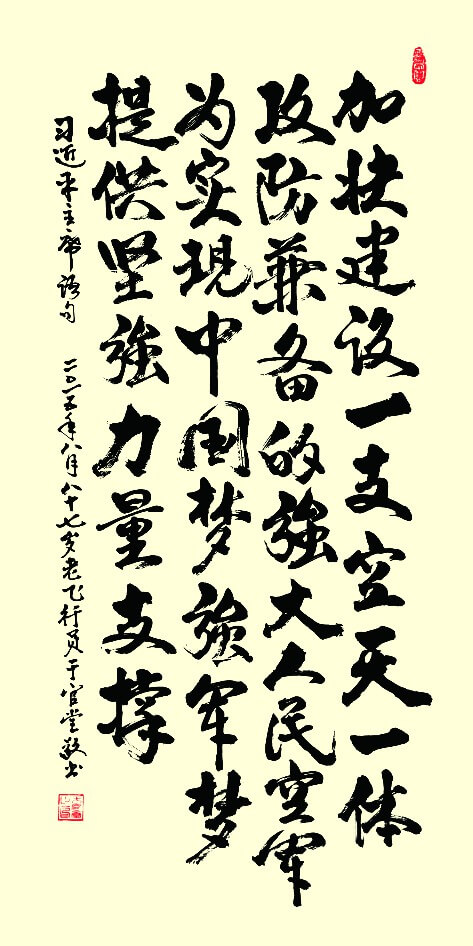 加快建设一支空天一体
攻防兼备的強大人民空军
为实现中国梦強军梦
提供坚強力量支撑
习近平主席语句 二〇一五年八月八十七岁老飞行员于官堂敬书